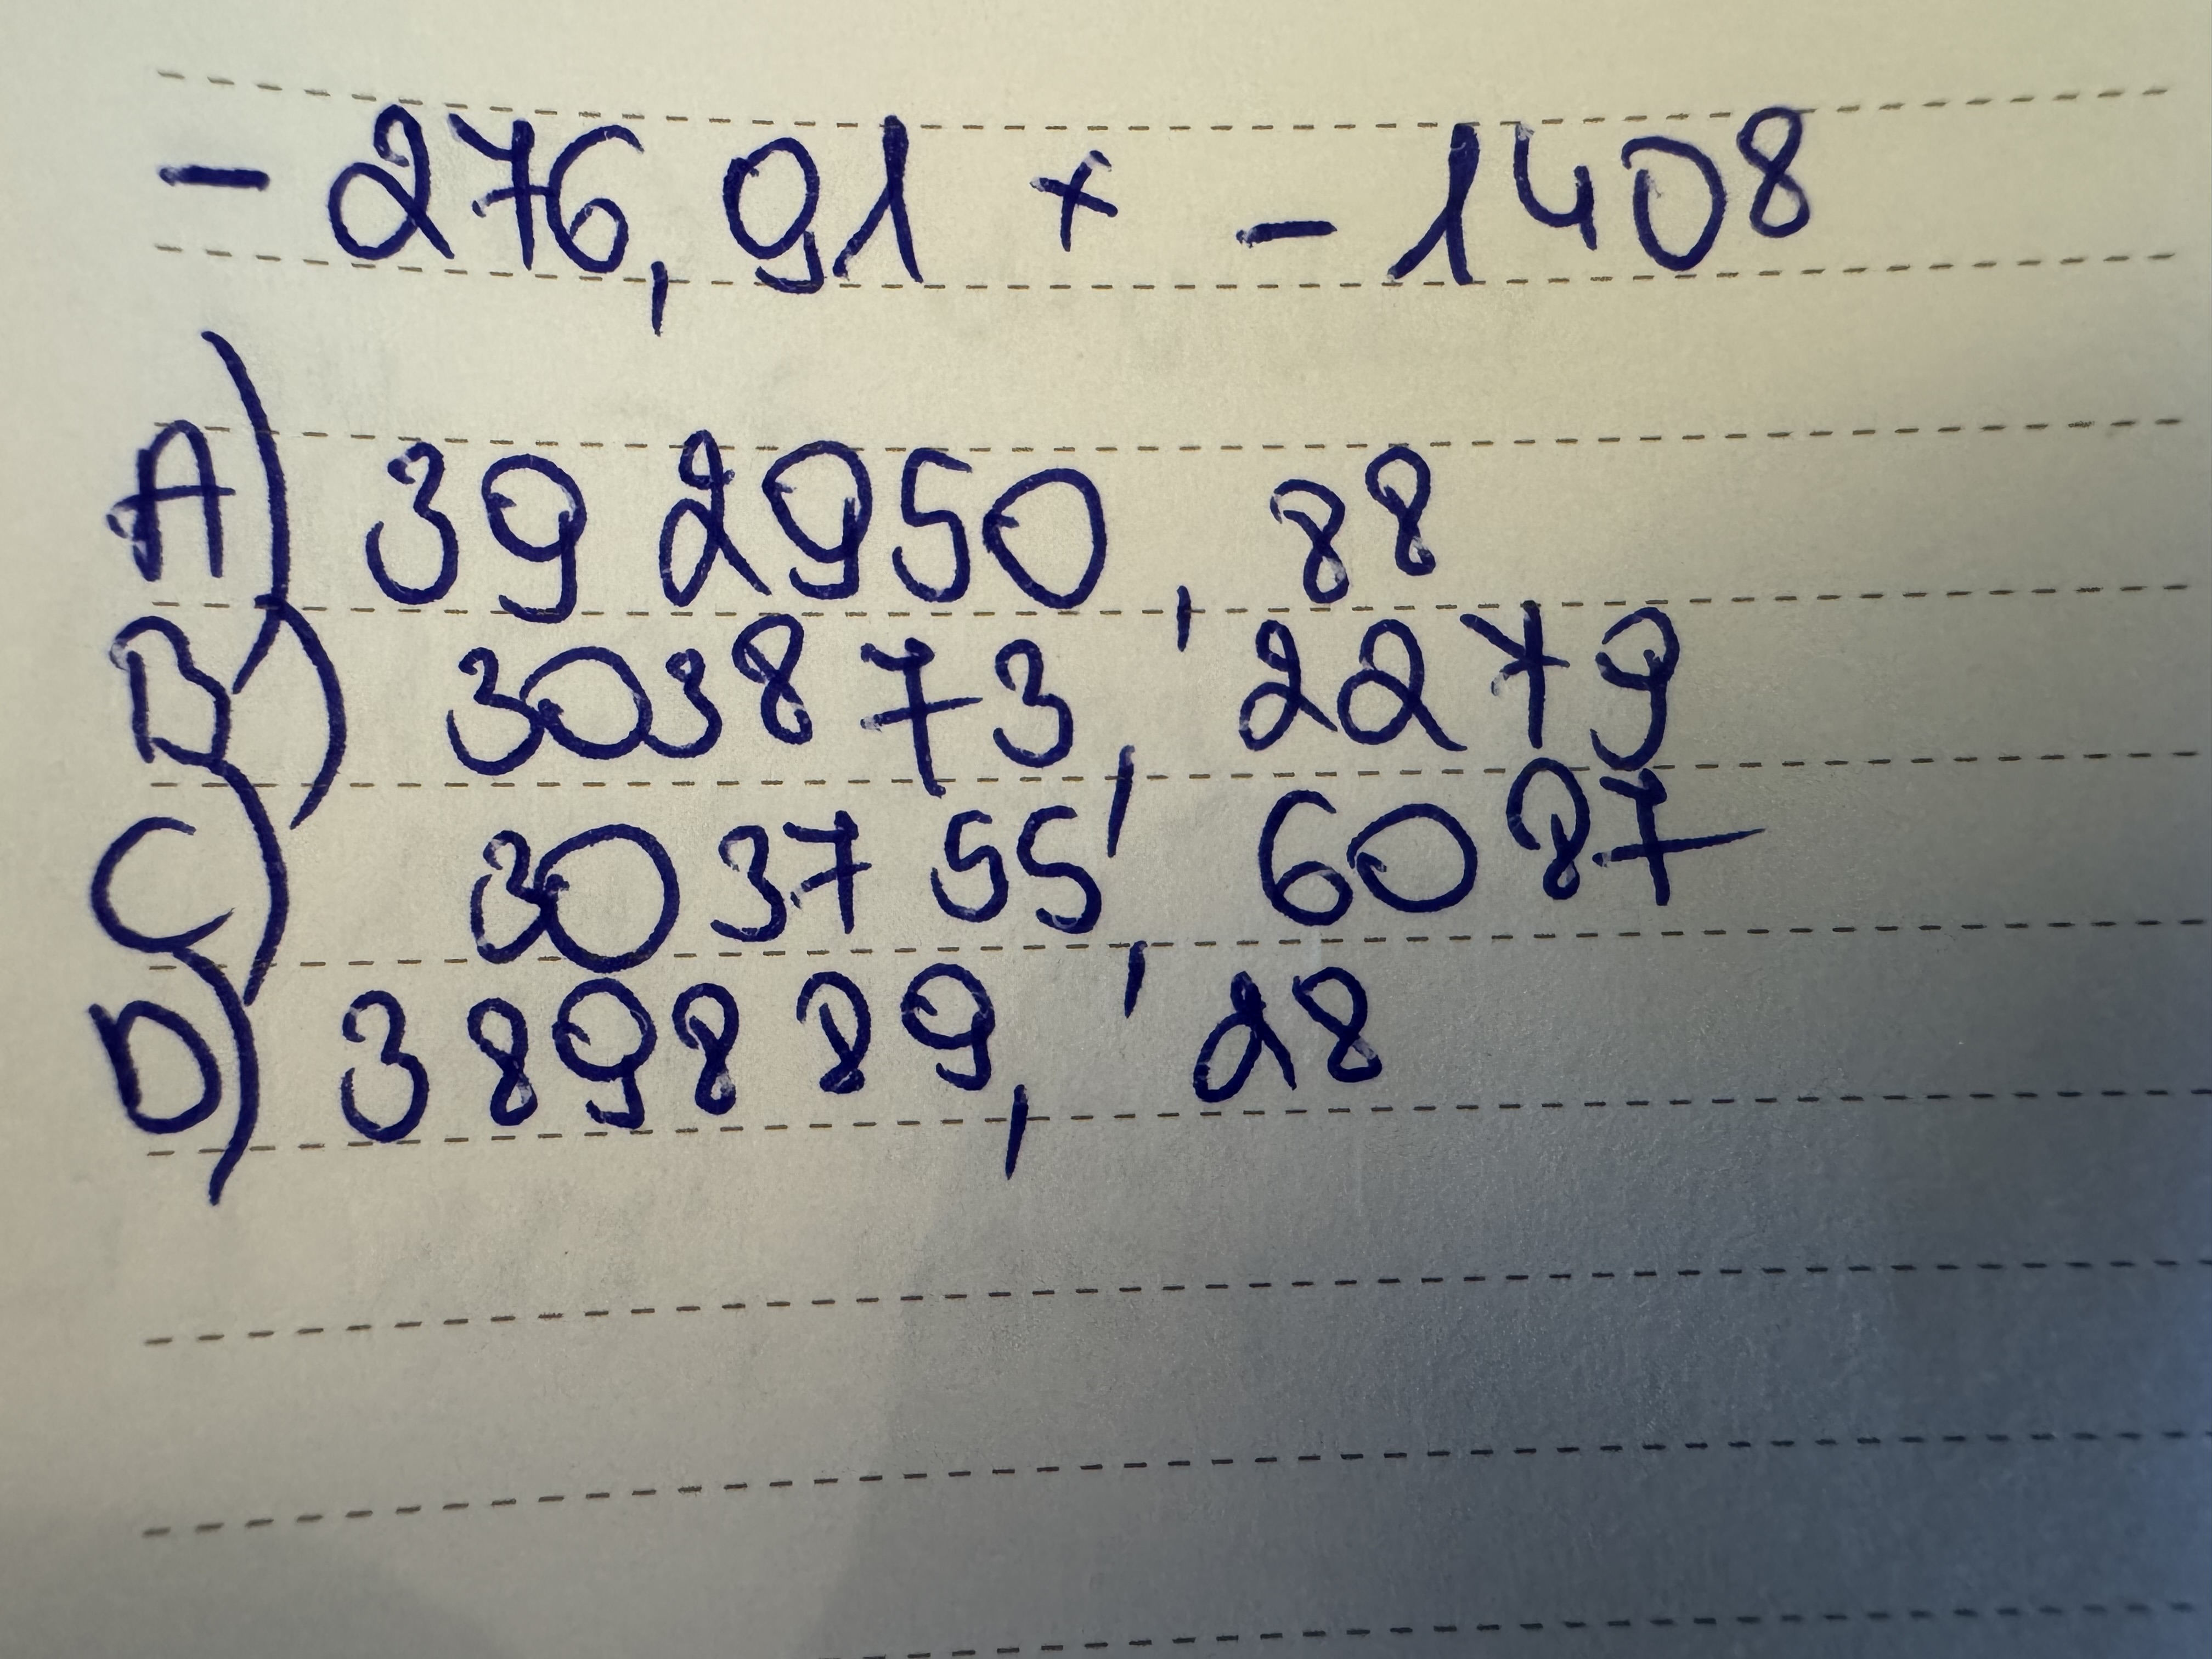 - 276,91 × - 1408
A) 392950,88
B) 303873,2279
C) 303755,6087
D) 389889,28